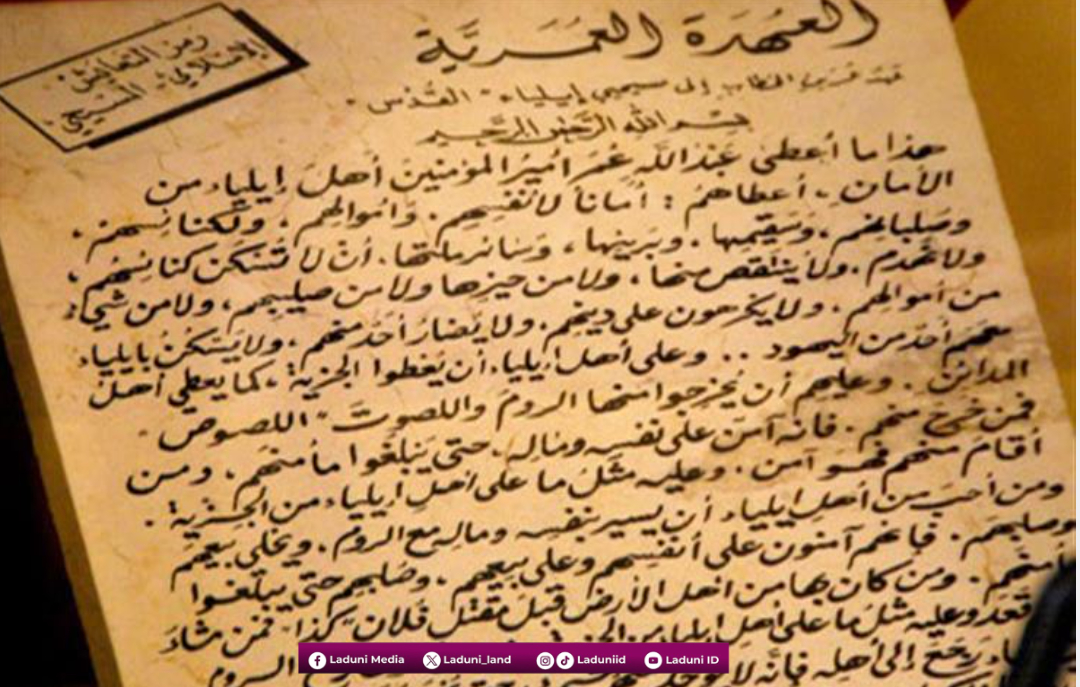 العُهْدَة العُمَريَّة
رمز التعايش
الإسلامي - المسيحي
إلى مسيحيي إيلياء "القُدْس"
بِسْمِ الله الرَّحمٰن الرَّحيم
هذا ما أعطى عَبْدُ اللَّهِ عُمَرُ أميرُ المؤمنينَ أهلَ إيلياء من
الأمان، أعطاهُمْ : أمَاناً لأنفُسِهِمْ، وَأموالِهم، ولكنائِسهمْ،
وصُلبانِهم، وسَقِيمِها، وبَريئِها، وَسَائر ملَّتها، أنْ لا تُسْكَن كنائِسُهُم،
ولا تُهْدَم، ولا يُنتقص منها، ولا من حيزها ولا من صليبهم، ولا من شيء
من أموالِهم، ولا يكرهون على دينِهم، ولا يُضَارَّ أحَدٌ منهم، ولا يَسْكُنَ بإيلياء
معهم أحدٌ من اليهود .. وعلى أهل إيلياء أن يُعْطوا الجزية، كما يعطي أهلُ
المدائن، وعليهم أن يُخرجوا منها الرومَ واللصوتَ "اللصوص"
فمن خَرَجَ منهم، فإنه آمِنٌ على نفسِه ومَالِه، حتى يَبلغوا مأمنَهم، ومن
أقامَ منهم فهو آمن، وعليه مثلُ ما على أهلِ إيلياء من الجزية.
ومن أحبَّ من أهل إيلياء أن يسيرَ بنفسِه ومالِه مع الروم، ويخلي بيعهم
وصلبهم، فإنهم آمنون على أنفسِهم وعلى بيعهم، وصُلبهم حتى يبلغوا
مأمنَهم، ومن كان بها من أهل الأرض قبلَ مقتل فلان "كذا" فمن شاءَ
قعدَ وعليه مثلُ ما على أهل إيلياء من
رجَعَ إلى أهلِه فإنَّه لا
الروم
Laduni Media
Laduni_land
Laduniid
Laduni ID